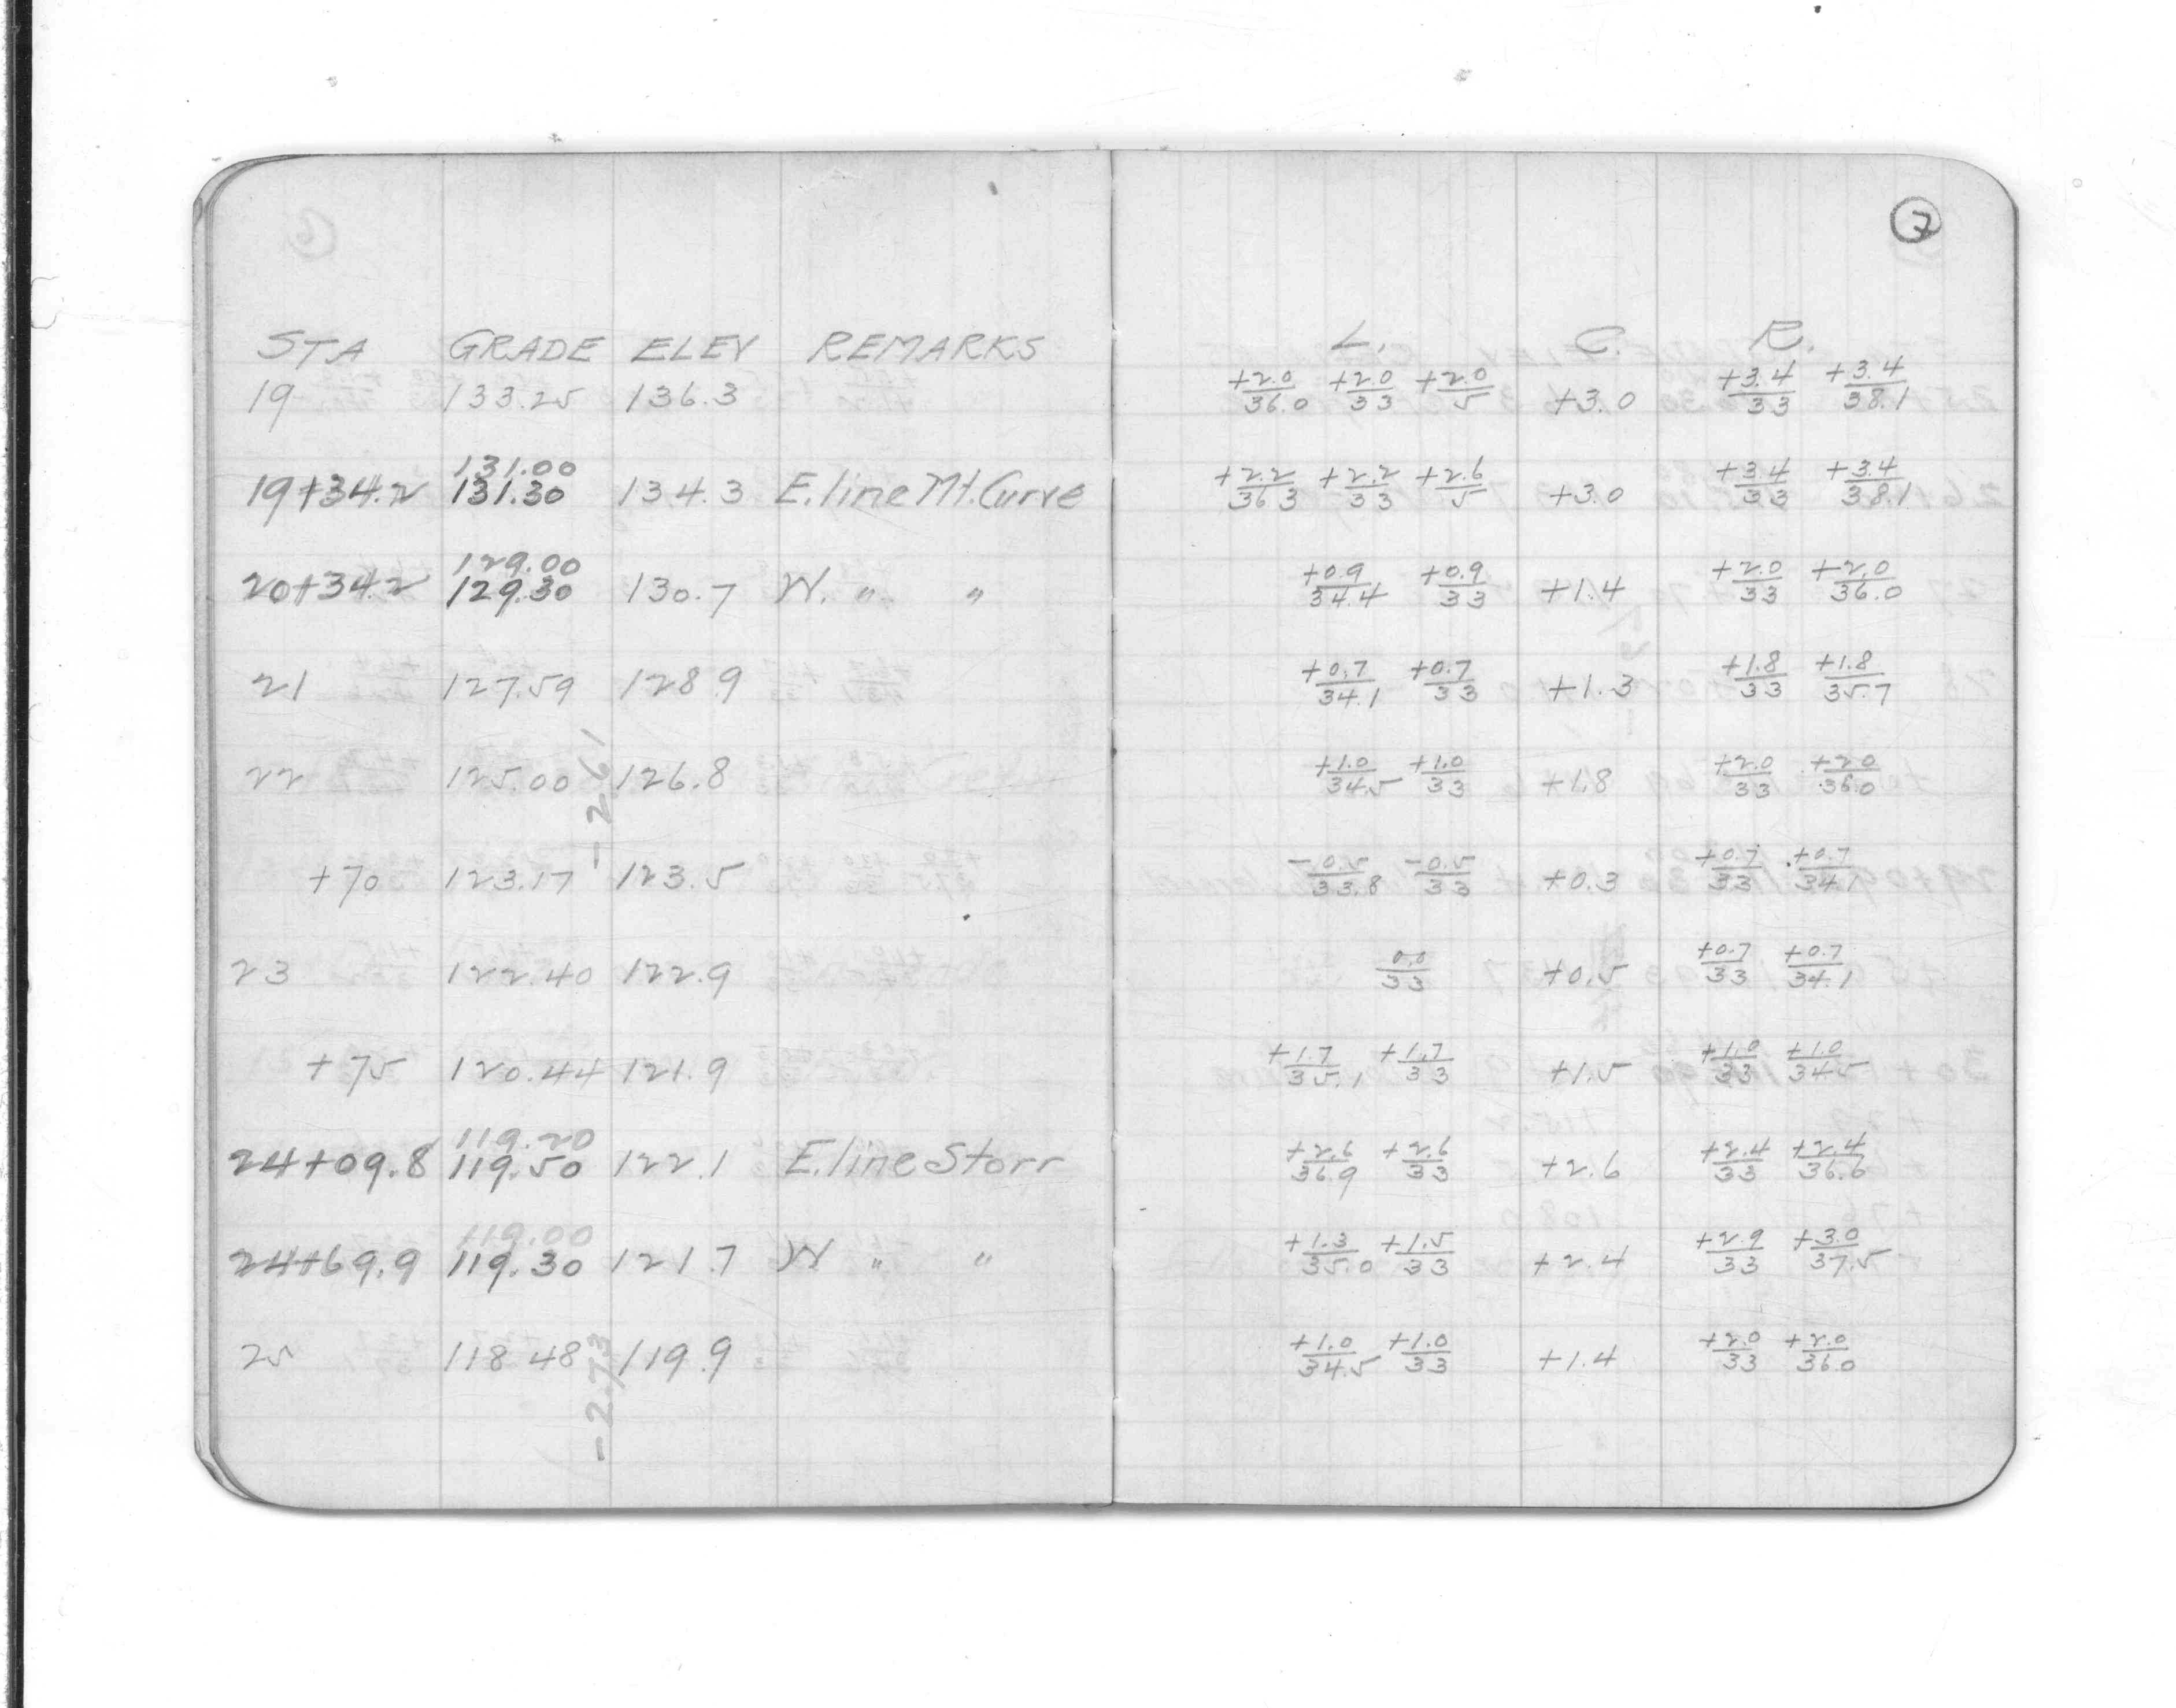 7
STA GRADE ELEV REMARKS L. C. R.
19 133.25 136.3 +2.0/36.0 +2.0/33 +2.0/5 +3.0 +3.4/33 +3.4/38.1
131.00
19+34.2 131.30 134.3 E. line Mt. Curve +2.2/36.3 +2.2/33 +2.6/5 +3.0 +3.4/33 +3.4/38.1
129.00
20+34.2 129.30 130.7 W. " " +0.9/34.4 +0.9/33 +1.4 +2.0/33 +2.0/36.0
21 127.59 128.9 +0.7/34.1 +0.7/33 +1.3 +1.8/33 +1.8/35.7
22 125.00 126.8 +1.0/34.5 +1.0/33 +1.8 +2.0/33 +2.0/36.0
-2.61
+70 123.17 123.5 -0.5/33.8 -0.5/33 +0.3 +0.7/33 +0.7/34.1
23 122.40 122.9 0.0/33 +0.5 +0.7/33 +0.7/34.1
+75 120.44 121.9 +1.7/35.1 +1.7/33 +1.5 +1.0/33 +1.0/34.5
119.20
24+09.8 119.50 122.1 E. line Storr +2.6/36.9 +2.6/33 +2.6 +2.4/33 +2.4/36.6
119.00
24+69.9 119.30 121.7 W " " +1.3/35.0 +1.5/33 +2.4 +2.9/33 +3.0/37.5
25 118.48 119.9 +1.0/34.5 +1.0/33 +1.4 +2.0/33 +2.0/36.0
-2.73